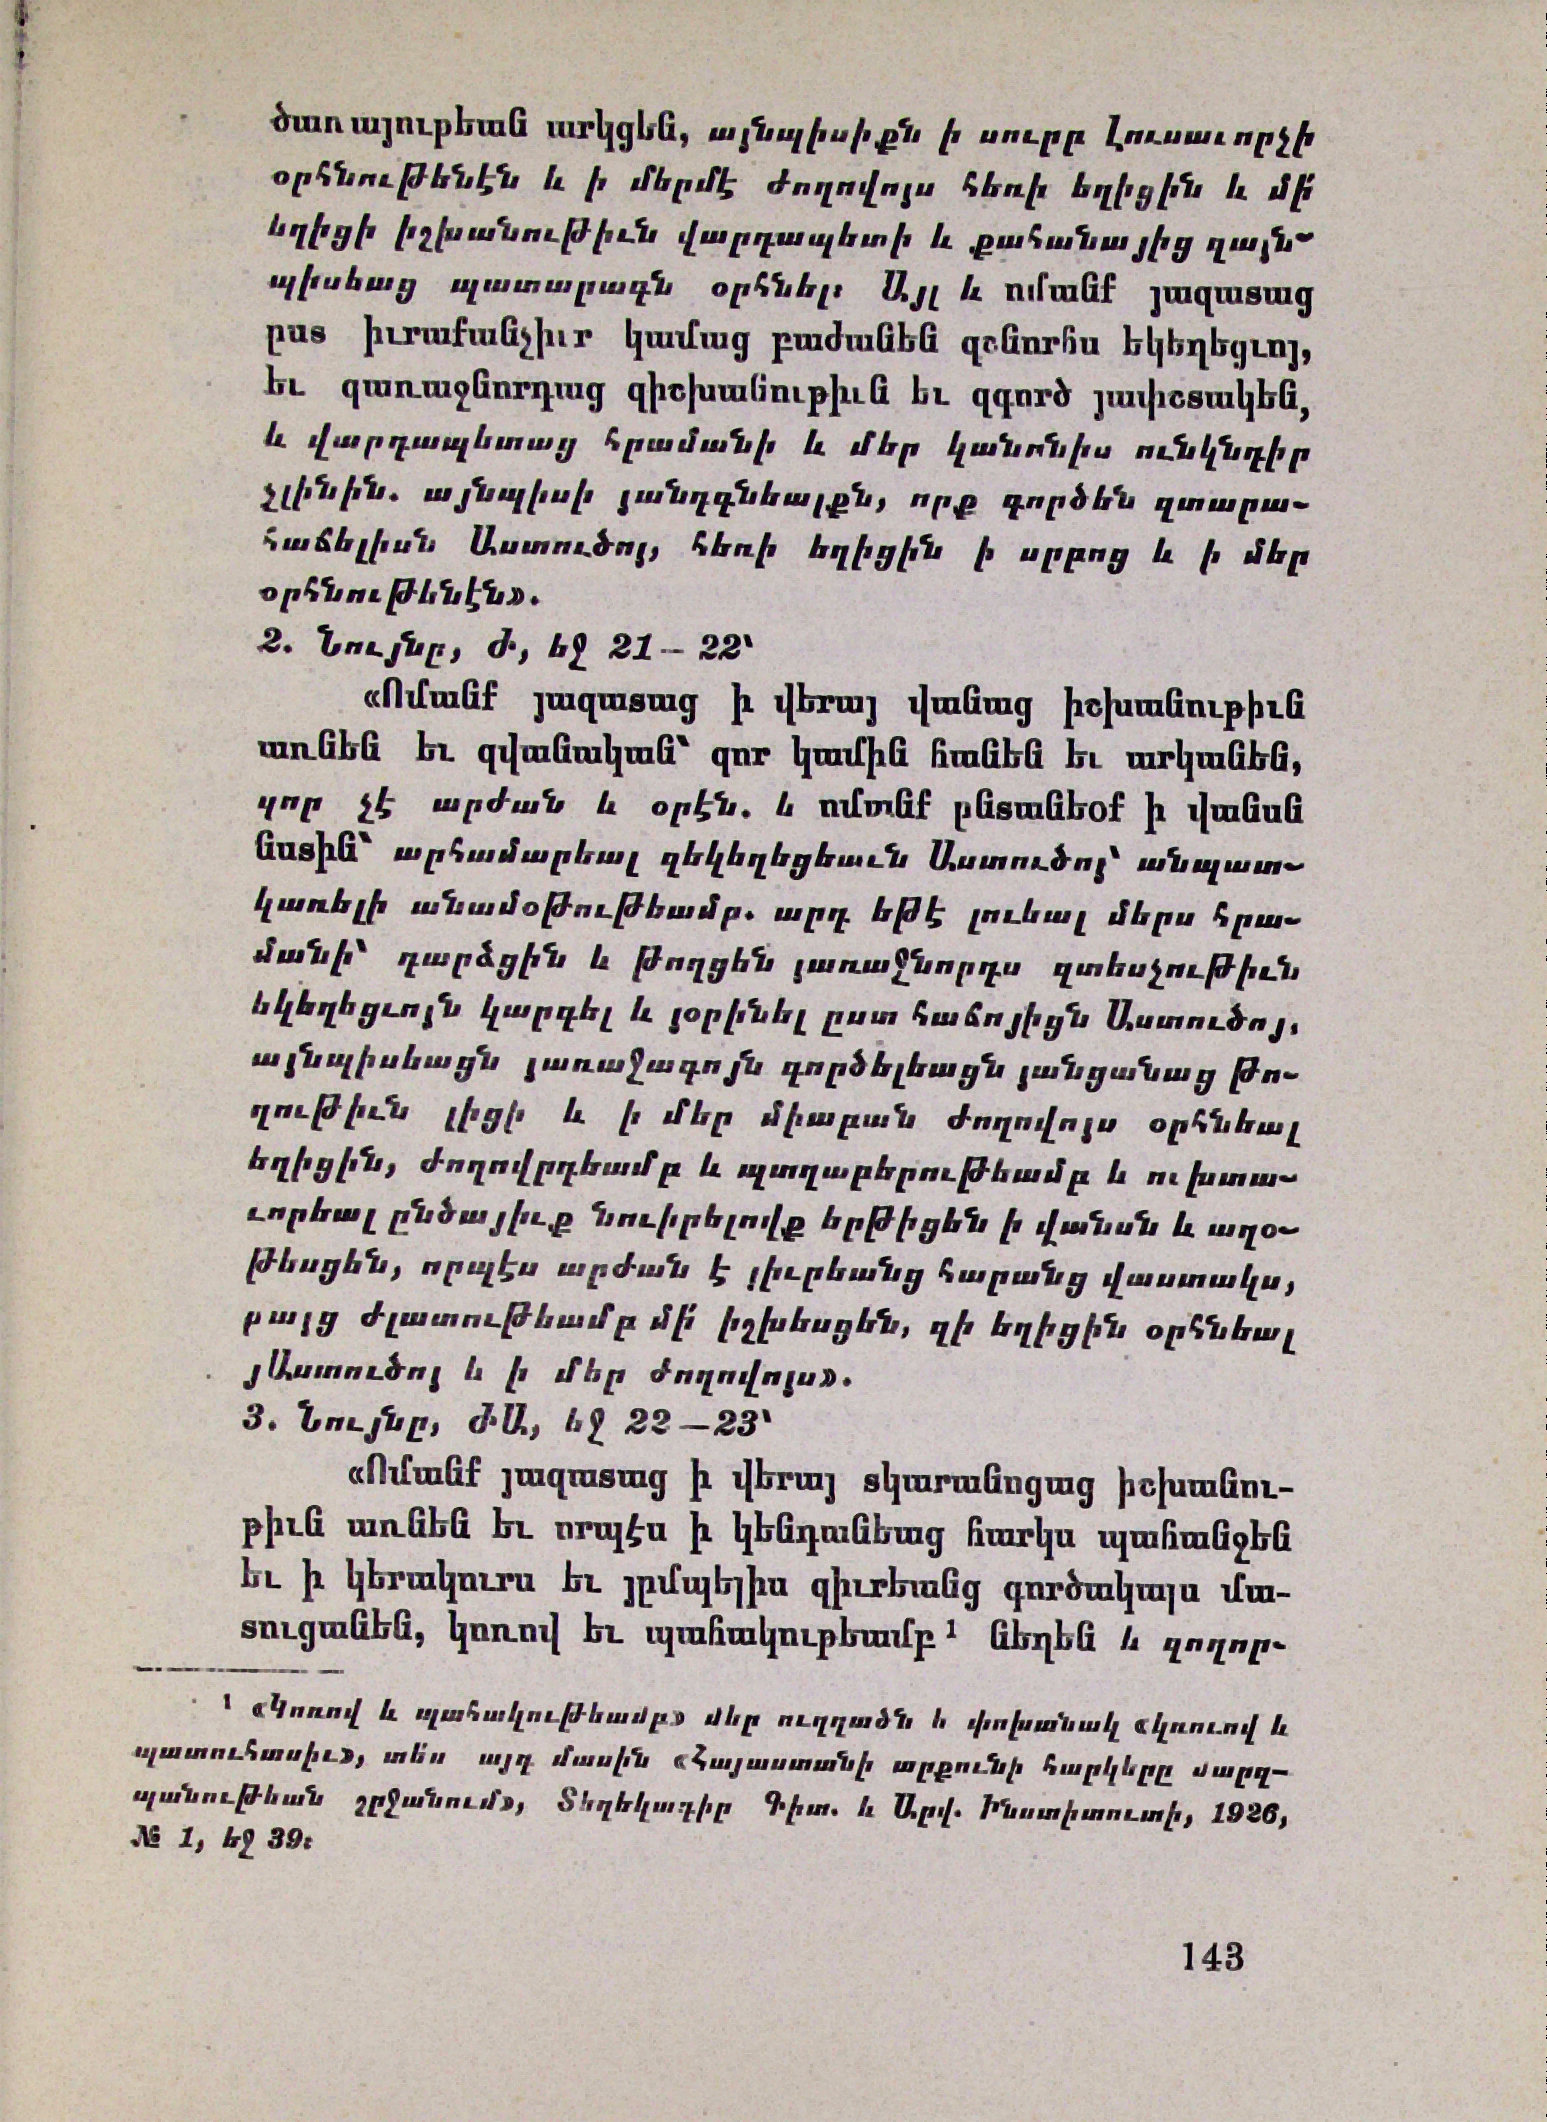 ծառայութեան արկցեն, այնպիսիքն ի սուրբ Լուսաւորչի
օրհնութենէն և ի մերմէ ժողովոյս հեռի եղիցին և մի՛
եղիցի իշխանութիւն վարդապետի և քահանայից զայն-
պիսեաց պատարագն օրհնել։ Այլ և ոմանք յազատաց
ըստ իւրաքանչիւր կամաց բաժանեն զշնորհս եկեղեցւոյ,
եւ զառաջնորդաց զիշխանութիւն եւ զգործ յափշտակեն,
և վարդապետաց հրամանի և մեր կանոնիս ունկնդիր
չլինին. այնպիսի յանդգնեալքն, որք գործեն զտարա-
հաճելիսն Աստուծոյ, հեռի եղիցին ի սրբոց և ի մեր
օրհնութենէն».
2. Նույնը, Ժ, եջ 21— 22՝
«Ոմանք յազատաց ի վերայ վանաց իշխանութիւն
առնեն եւ զվանական՝ զոր կամին հանեն եւ արկանեն,
զոր չէ արժան և օրէն. և ոմանք ընտանեօք ի վանսն
նստին՝ արհամարեալ զեկեղեցեաւն Աստուծոյ՝ անպատ-
կառելի անամօթութեամբ. արդ եթէ լուեալ մերս հրա-
մանի՝ դարձցին և թողցեն յառաջնորդս զտեսչութիւն
եկեղեցւոյն կարգել և յօրինել ըստ հաճոյիցն Աստուծոյ,
այնպիսեացն յառաջագոյն գործելեացն յանցանաց թո-
ղութիւն լիցի և ի մեր միաբան ժողովոյս օրհնեալ
եղիցին, ժողովրդեամբ և պտղաբերութեամբ և ուխտա-
ւորեալ ընծայիւք նուիրելովք երթիցեն ի վանսն և աղօ-
թեսցեն, որպէս արժան է յիւրեանց հարանց վաստակս,
բայց ժլատութեամբ մի՛ իշխեսցեն, զի եղիցին օրհնեալ
յԱստուծոյ և ի մեր ժողովոյս».
3. Նույնը, ԺԱ, եջ 22—23՝
«Ոմանք յազատաց ի վերայ տկարանոցաց իշխանու-
թիւն առնեն եւ որպէս ի կենդանեաց հարկս պահանջեն
եւ ի կերակուրս եւ յըմպելիս զիւրեանց գործակալս մա-
տուցանեն, կոռով եւ պահակութեամբ¹ նեղեն և զողոր-
¹ «Կոռով և պահակութեամբ» մեր ուղղածն ե փոխանակ «կռուով և
պատուհասիւ», տե՛ս այդ մասին «Հայաստանի արքունի հարկերը մարզ-
պանութեան շրջանում», Տեղեկագիր Գիտ. և Արվ. Ինստիտուտի, 1926,
№ 1, եջ 39։
143